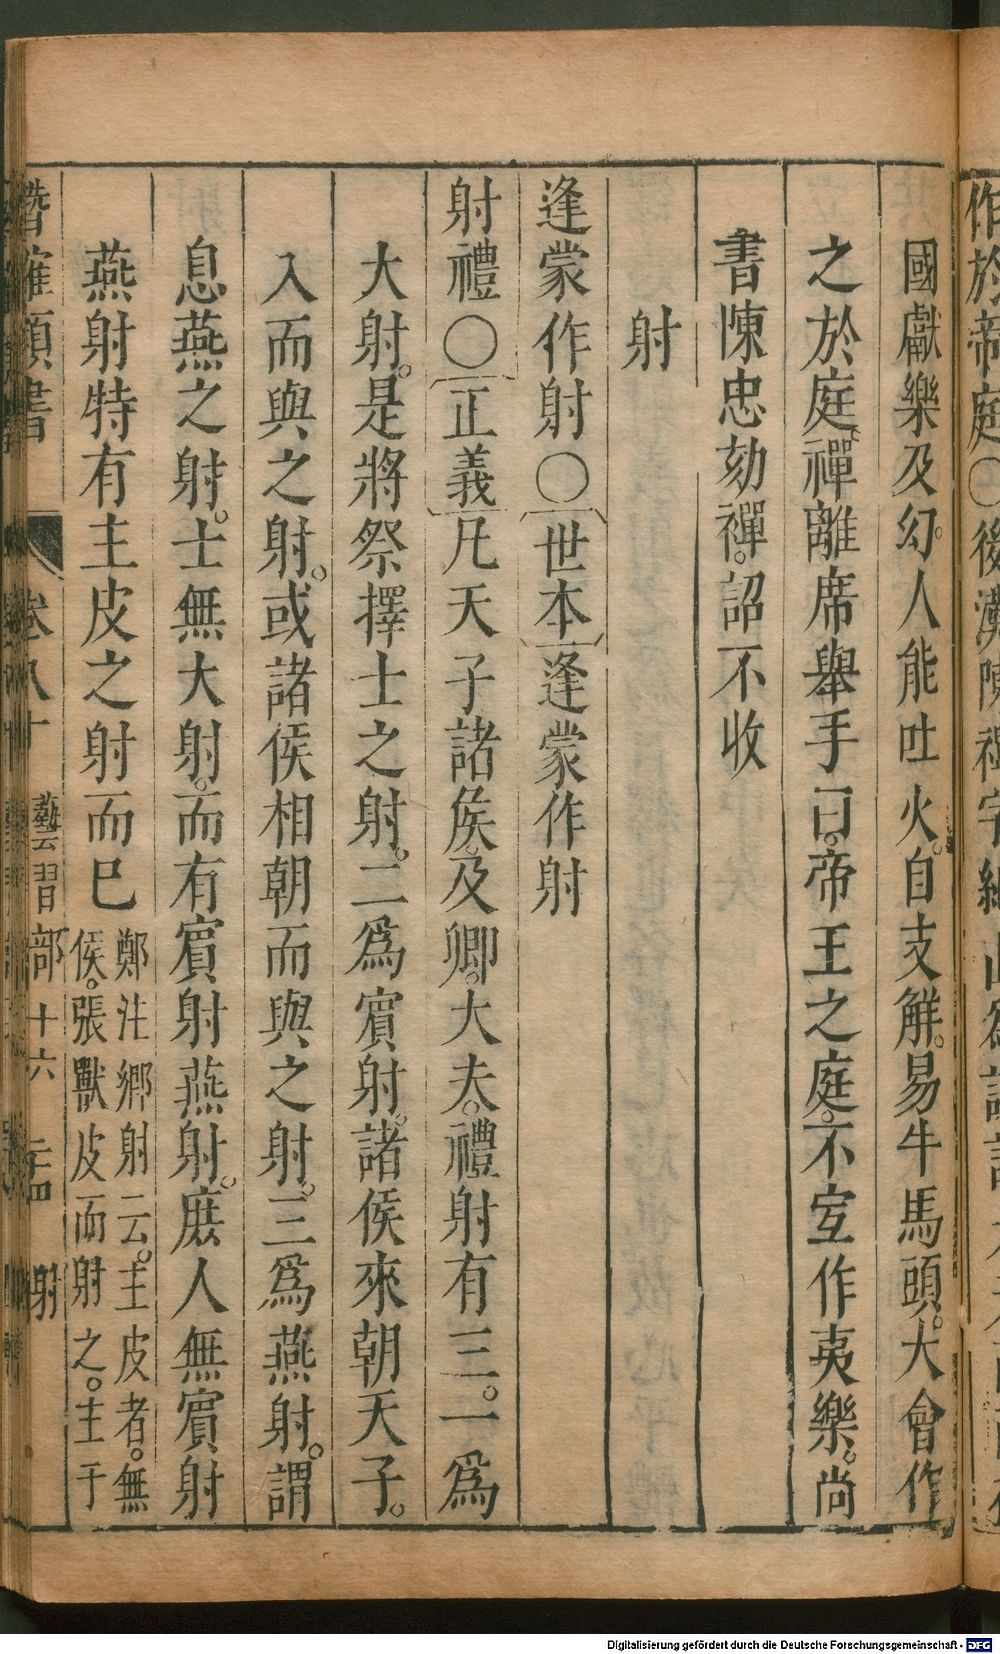 作於帝庭○後漢陳禪字
國獻樂及幻。人能吐火。自支解。易牛馬頭。大會作
之於庭。禪離席舉手曰。帝王之庭。不宜作夷樂。尚
書陳忠劾禪。詔不收
射
逢蒙作射○世本逢蒙作射
射禮○正義凡天子諸侯。及卿。大夫。禮射有三。一爲
大射。是將祭擇士之射。二爲賓射。諸侯來朝天子。
入而與之射。或諸侯相朝而與之射。三爲燕射。謂
息燕之射。士無大射。而有賓射燕射。庶人無賓射
燕射特有主皮之射而已鄭注鄉射云。主皮者。無
侯。張獸皮而射之。主于
潛確類書 卷八十 藝習部十六 射
Digitalisierung gefördert durch die Deutsche Forschungsgemeinschaft - DFG